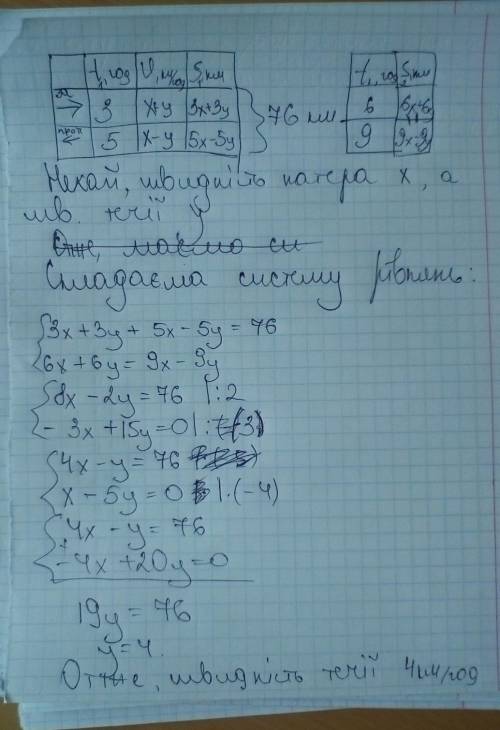 t, год V, км/год S, км
За 3 x+y 3x+3y
прот 5 x-y 5x-5y
76 км
t, год S, км
6 6x+6y
9 9x-9y
Нехай, швидкість катера x, а
шв. течії y
Отже, маємо си
Складаєма систему рівнянь:
3x + 3y + 5x - 5y = 76
6x + 6y = 9x - 9y
8x - 2y = 76 |:2
- 3x + 15y = 0 |:(-3)
4x - y = 76
x - 5y = 0 |·(-4)
4x - y = 76
+
-4x + 20y = 0
19y = 76
y = 4.
Отже, швидкість течії 4 км/год